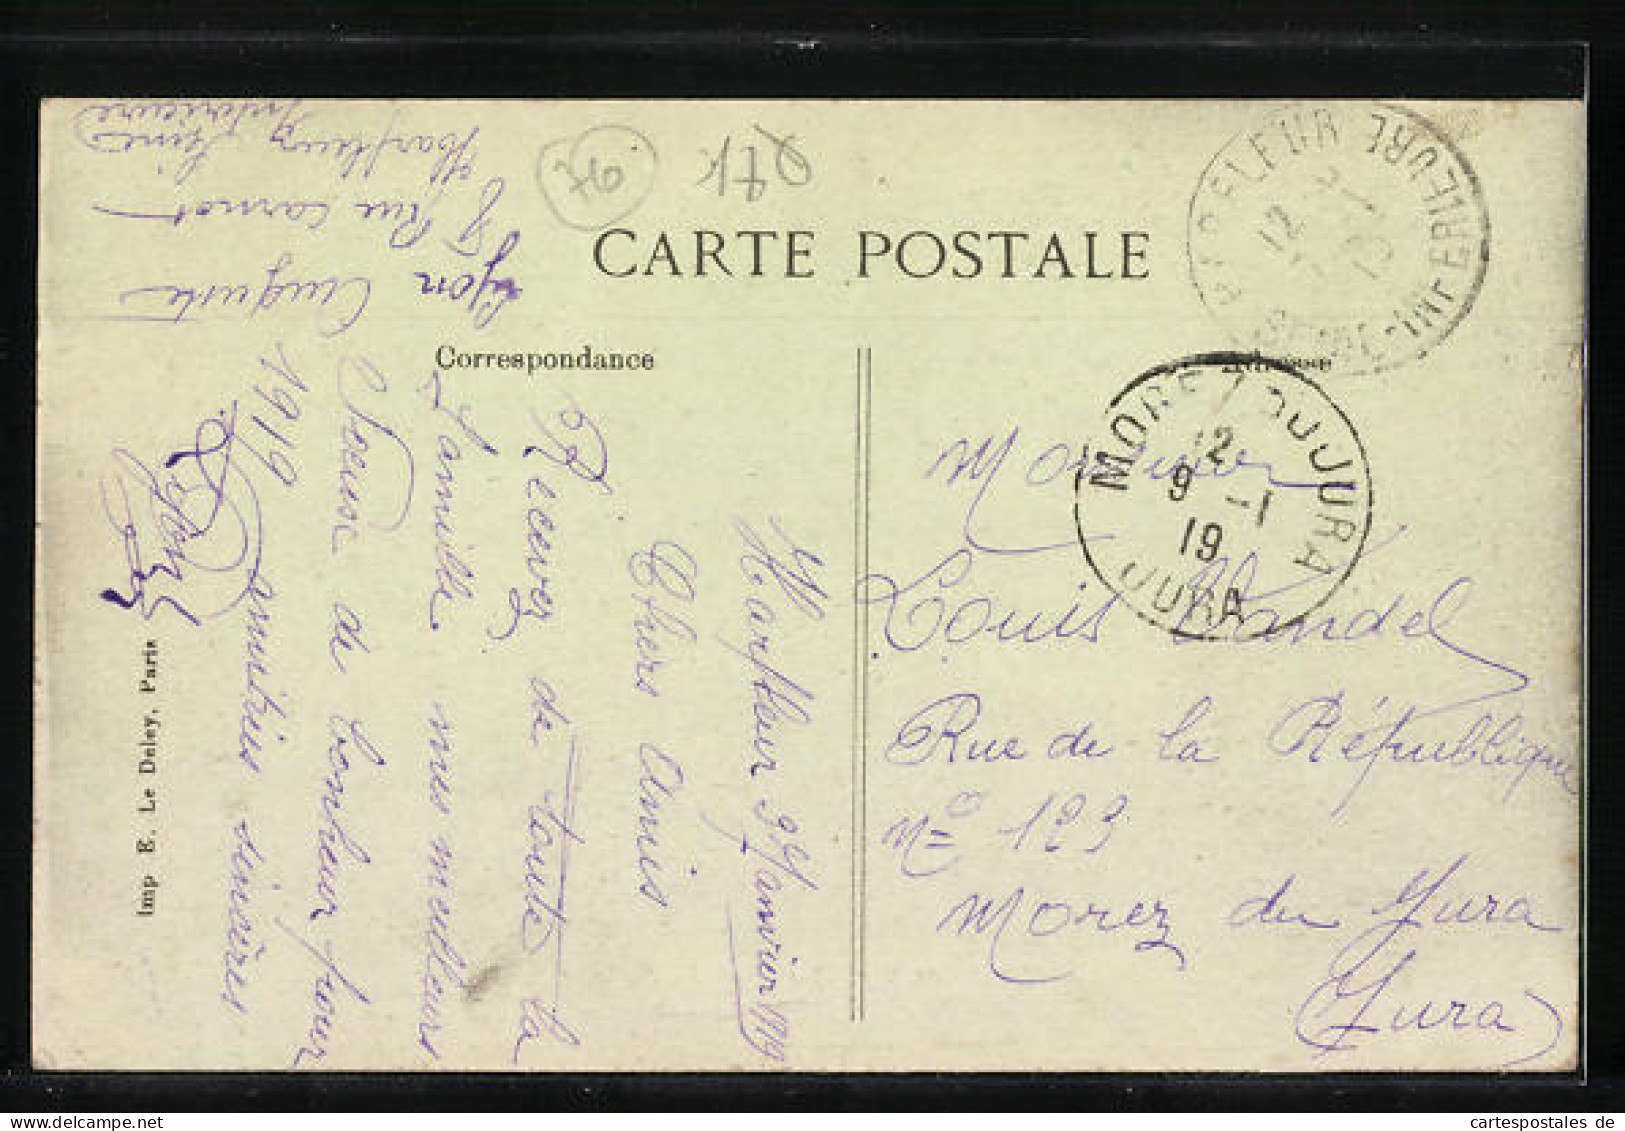 CARTE POSTALE
Correspondance
Adresse
Harfleur 9 Janvier 1919
Chers Amis
Recevez de toute la
famille mes meilleurs
de bonheur pour
1919 amitiés sincères
Auguste
8 Rue Carnot
Harfleur Seine
Inférieure
Imp E. Le Deley, Paris
76
HARFLEUR
SEINE-INFERIEURE
12
MOREZ-DU-JURA
12
9 -1
19
JURA
Monsieur
Louis Mandel
Rue de la République
N° 123
Morez du Jura
Jura
cartespostales de